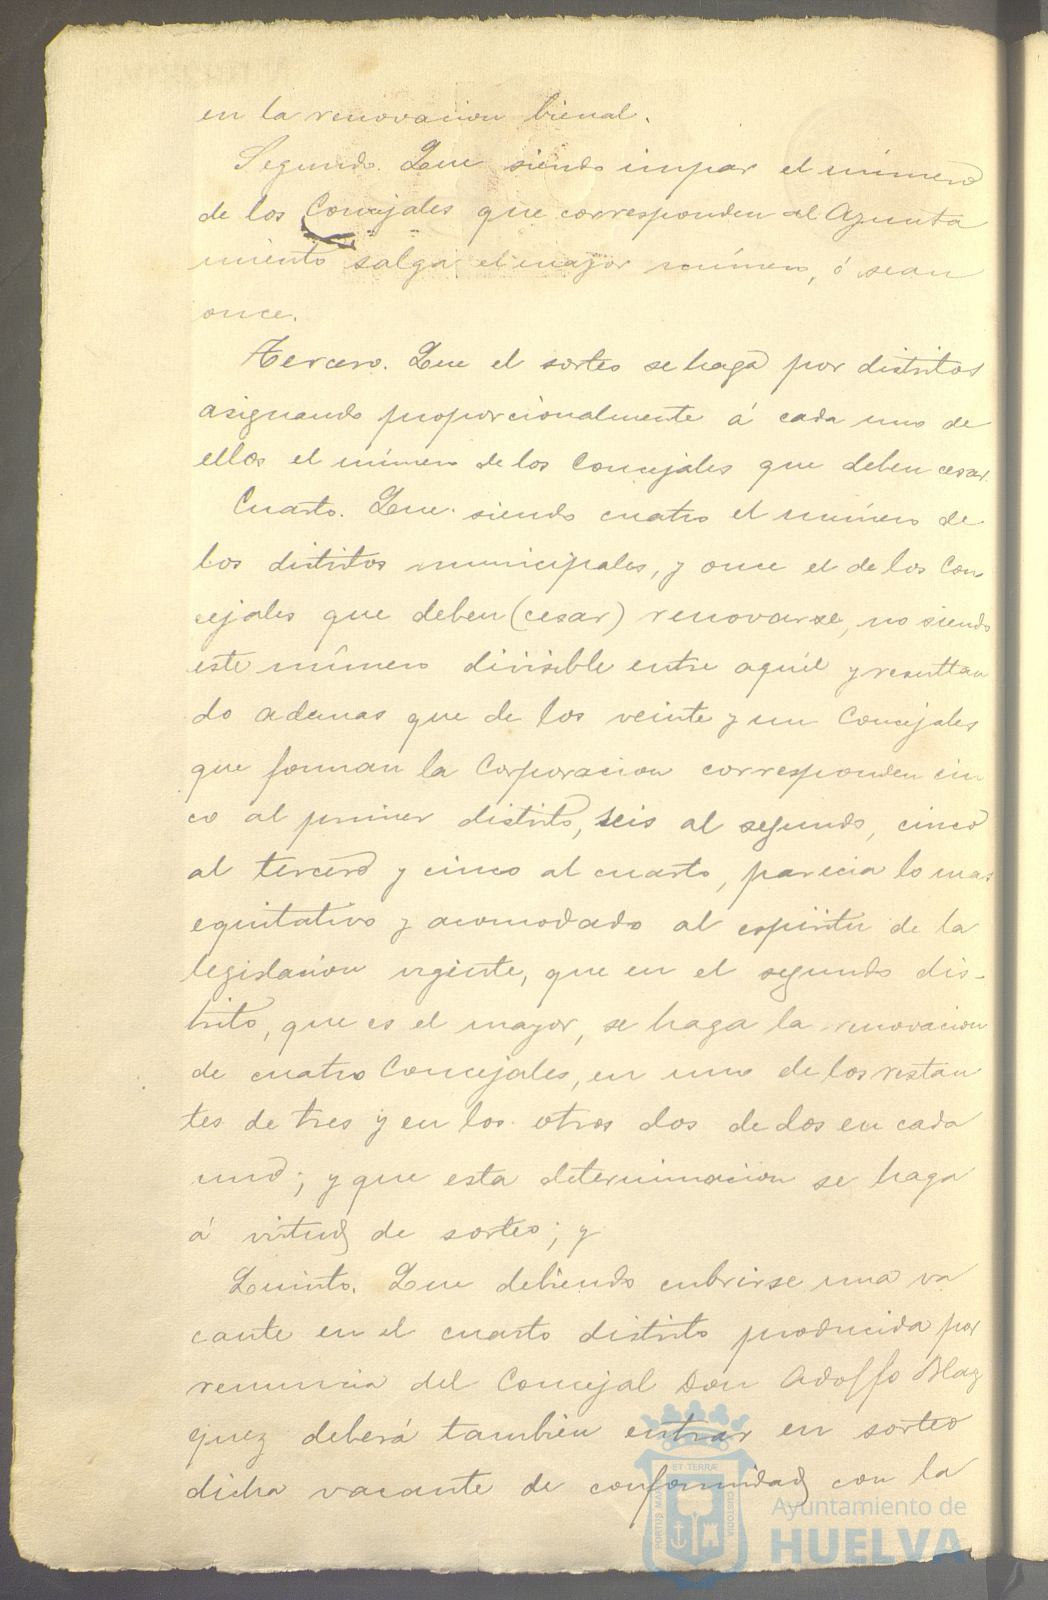 en la renovacion bienal.
Segundo. Que siendo impar el número
de los Concejales que corresponden al Ayunta
miento salga el mayor número, ó sean
once.
Tercero. Que el sorteo se haga por distritos
asignando proporcionalmente á cada uno de
ellos el número de los Concejales que deben cesar.
Cuarto. Que siendo cuatro el número de
los distritos municipales, y once el de los Con-
cejales que deben (cesar) renovarse, no siendo
este número divisible entre aquél y resultan
do ademas que de los veinte y un Concejales
que forman la Corporacion corresponden cin
co al primer distrito, seis al segundo, cinco
al tercero y cinco al cuarto, parecia lo mas
equitativo y acomodado al espíritu de la
legislacion vigente, que en el segundo dis-
trito, que es el mayor, se haga la renovacion
de cuatro Concejales, en uno de los restan
tes de tres y en los otros dos de dos en cada
uno; y que esta determinacion se haga
á virtud de sorteo; y
Quinto. Que debiendo cubrirse una va
cante en el cuarto distrito producida por
renuncia del Concejal Don Adolfo Blaz
quez deberá tambien entrar en sorteo
dicha vacante de conformidad con la
PORTUS MARIS ET TERRAE CUSTODIA
Ayuntamiento de
HUELVA